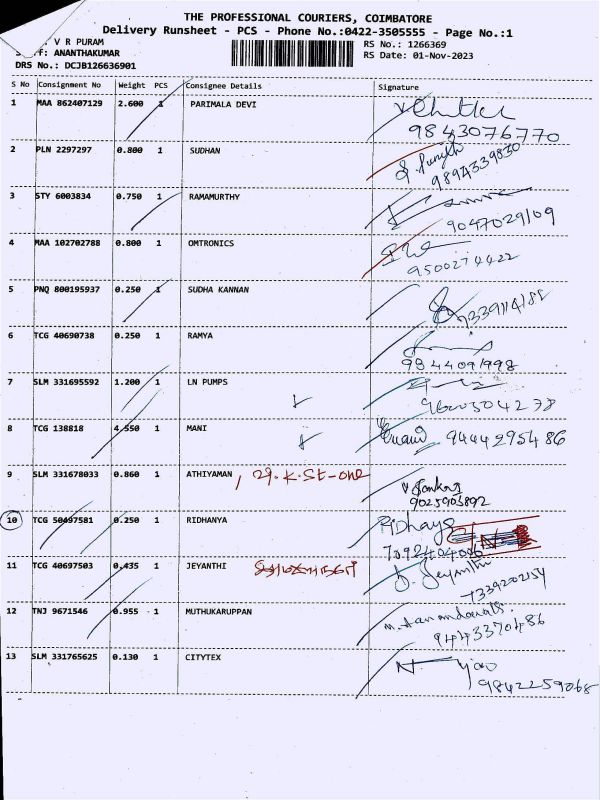 THE PROFESSIONAL COURIERS, COIMBATORE
Delivery Runsheet - PCS - Phone No.:0422-3505555 - Page No.:1
: V R PURAM
f: ANANTHAKUMAR
DRS No.: DCJB126636901
RS No.: 1266369
RS Date: 01-Nov-2023
S No Consignment No Weight PCS Consignee Details Signature
1 MAA 862407129 2.600 1 PARIMALA DEVI
9843076770
2 PLN 2297297 0.800 1 SUDHAN
9894339830
3 STY 6003834 0.750 1 RAMAMURTHY
9047029109
4 MAA 102702788 0.800 1 OMTRONICS
9500274422
5 PNQ 800195937 0.250 1 SUDHA KANNAN
6 TCG 40690738 0.250 1 RAMYA
9844091998
7 SLM 331695592 1.200 1 LN PUMPS
8 TCG 138818 4.550 1 MANI
9444295486
9 SLM 331678033 0.860 1 ATHIYAMAN , 29.K.St-one
9025903892
10 TCG 50497581 0.250 1 RIDHANYA
Ridhaya
7092404006
11 TCG 40697503 0.435 1 JEYANTHI
D. Jeyanthi
7339202154
12 TNJ 9671546 0.955 1 MUTHUKARUPPAN
9443370486
13 SLM 331765625 0.130 1 CITYTEX
9842259068